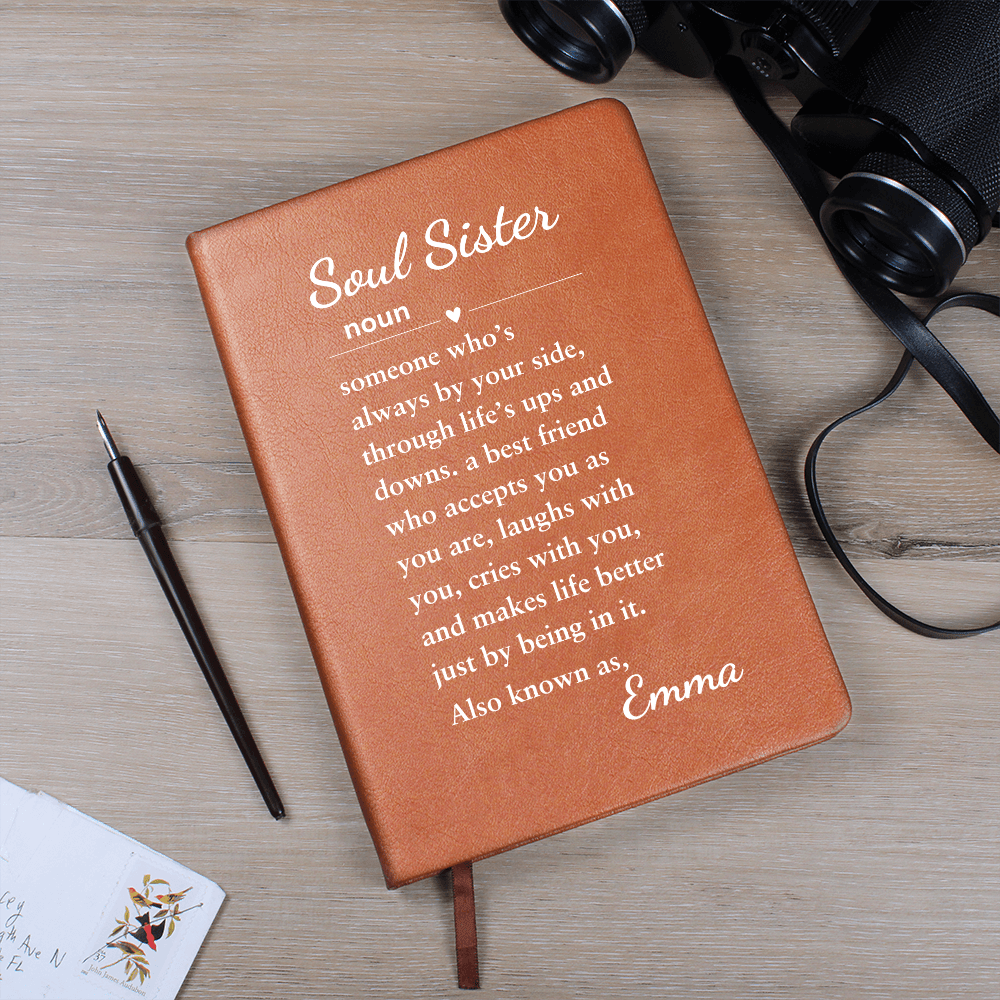 Soul Sister
noun
someone who’s
always by your side,
through life’s ups and
downs. a best friend
who accepts you as
you are, laughs with
you, cries with you,
and makes life better
just by being in it.
Also known as,
Emma
Ave N
FL
37
John James Audubon